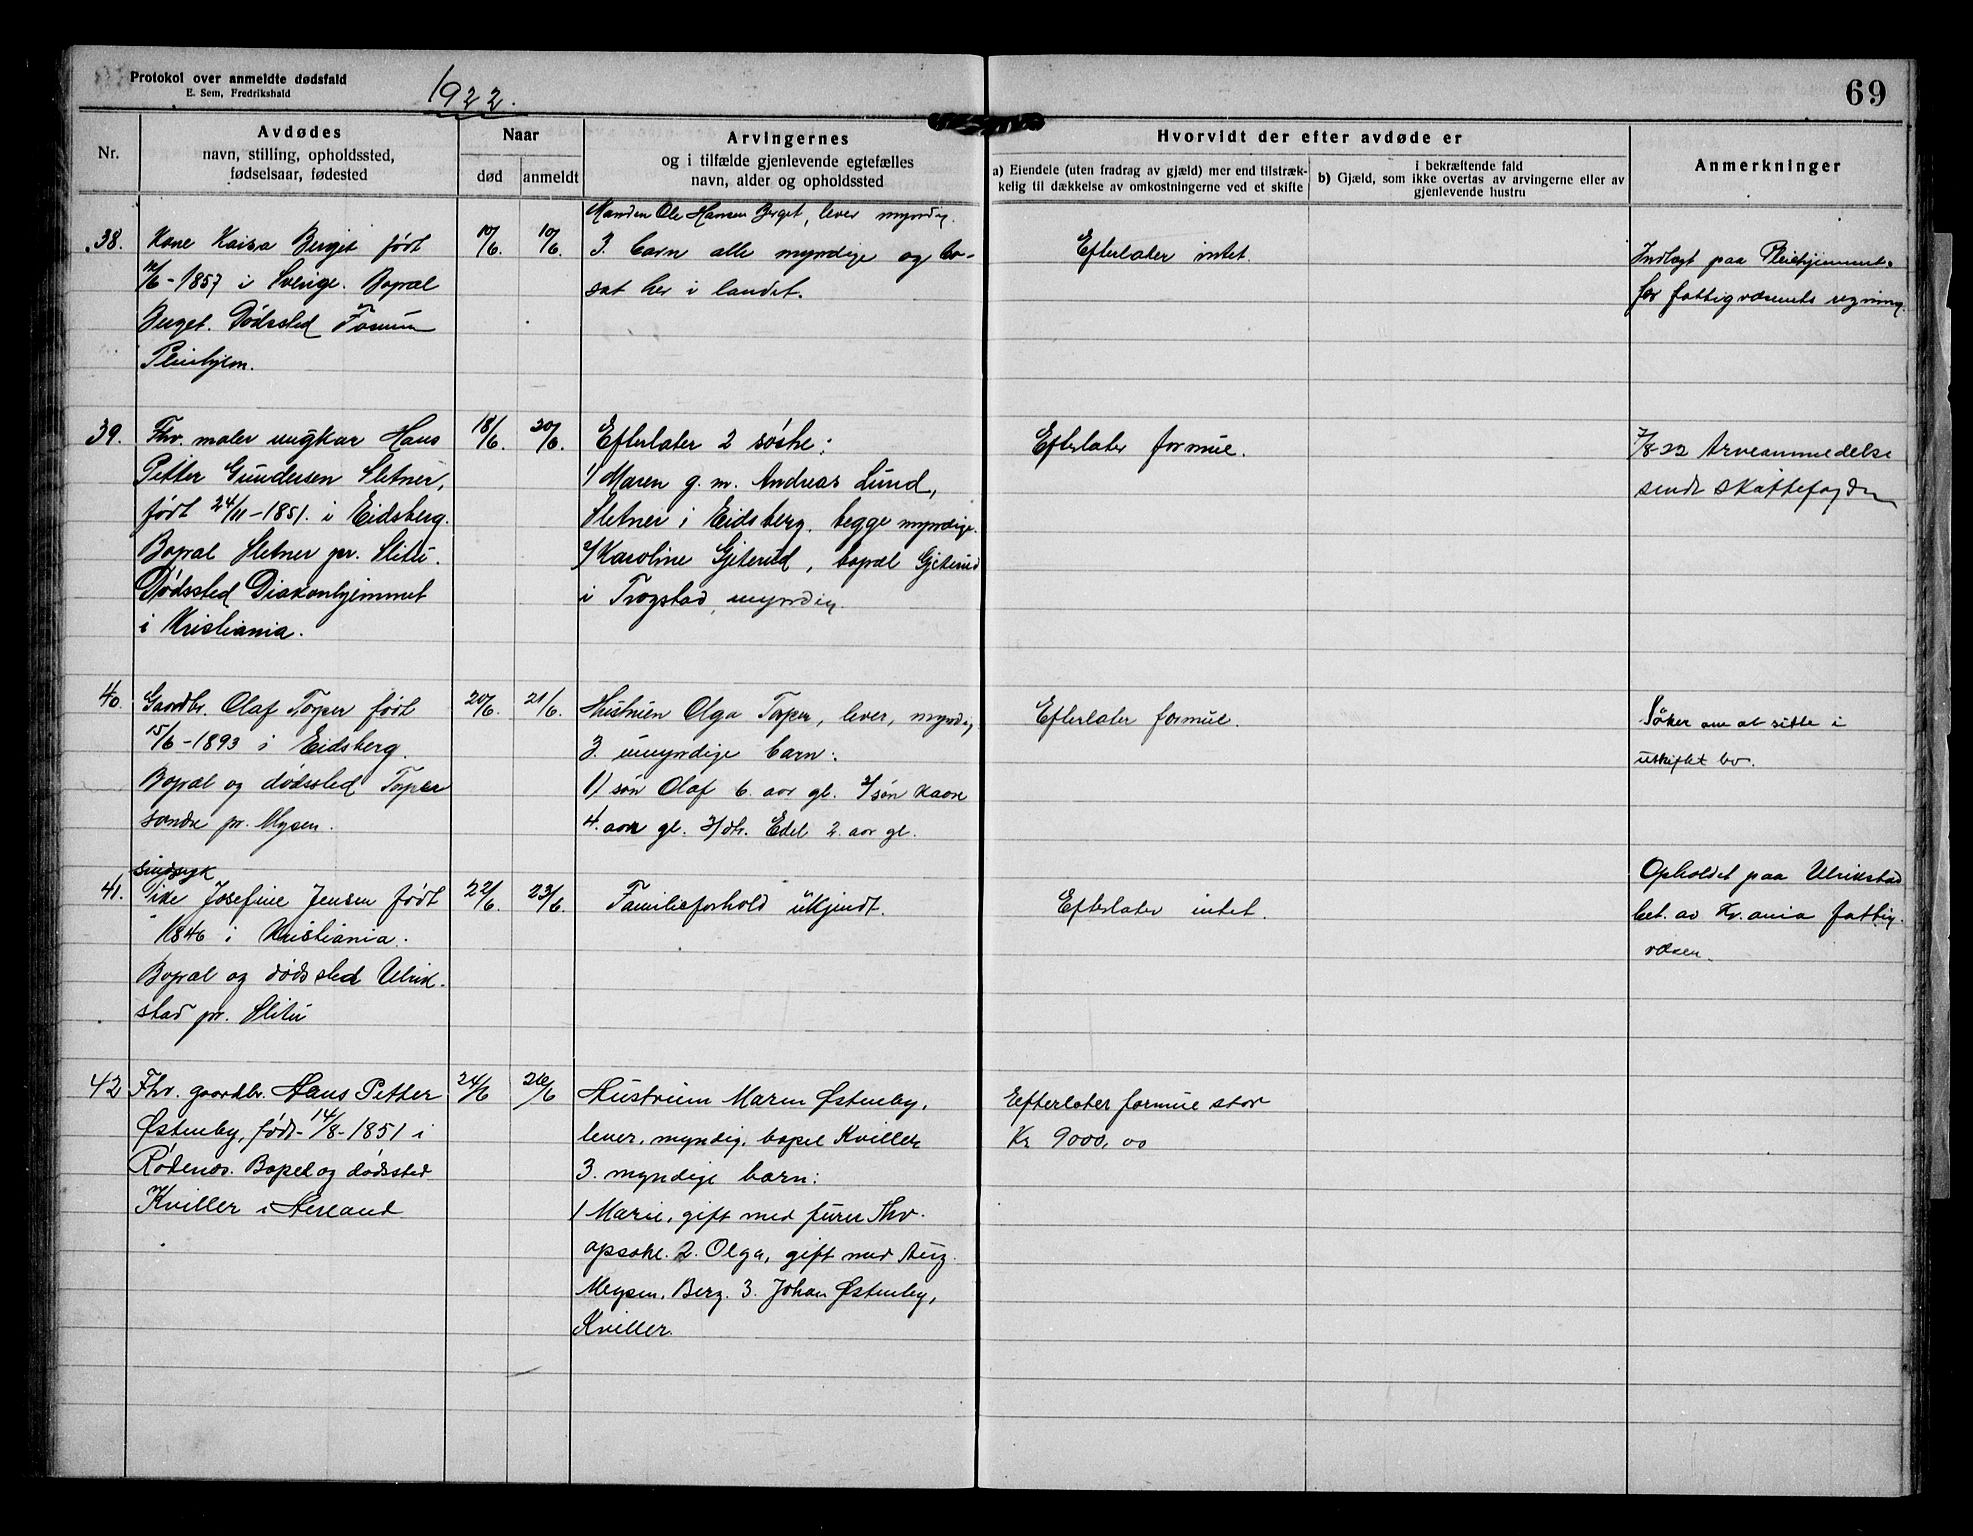 Protokol over anmeldte dødsfald
E. Sem, Fredrikshald
1922.
69
Nr.
Avdødes
navn, stilling, opholdssted,
fødselsaar, fødested
Naar
død
anmeldt
Arvingernes
og i tilfælde gjenlevende egtefælles
navn, alder og opholdssted
Hvorvidt der efter avdøde er
a) Eiendele (uten fradrag av gjæld) mer end tilstræk-
kelig til dækkelse av omkostningerne ved et skifte
i bekræftende fald
b) Gjæld, som ikke overtas av arvingerne eller av
gjenlevende hustru
Anmerkninger
38.
Kone Kaisa Berget født
12/6-1857 i Sverige. Bopæl
Berget. Dødssted Fossum
Pleiehjem.
10/6.
10/6.
Manden Ole Hansen Berget, lever myndig.
3. barn alle myndige og bo-
sat her i landet.
Efterlater intet.
Indlagt paa Pleiehjemmet
for fattigvæsenets regning.
39.
Fhv. maler ungkar Hans
Petter Gundersen Sletner,
født 24/11-1851. i Eidsberg.
Bopæl Sletner pr. Slitu.
Dødssted Diakonhjemmet
i Kristiania.
18/6.
20/6.
Efterlater 2 søske:
1/ Maren g. m. Andreas Lund,
Sletner i Eidsberg. begge myndige.
2/ Karoline Gjeterud, bopæl Gjeterud
i Trøgstad, myndig.
Efterlater formue.
7/8-22 Arveanmeldelse
sendt skattefogden
40.
Gaardbr. Olaf Torper født
15/6-1893 i Eidsberg.
Bopæl og dødssted Torper
søndre pr. Mysen.
20/6.
21/6.
Hustruen Olga Torper, lever, myndig
3. umyndige barn:
1/ søn Olaf 6. aar gl. 2/ søn Kaare
4. aar gl. 3/ dtr. Edel 2. aar gl.
Efterlater formue.
Søker om at sitte i
uskiftet bo.
41.
sindssyk
Pike Josefine Jensen født
1846 i Kristiania.
Bopæl og dødssted Ulrik-
stad pr. Slitu
22/6.
23/6.
Familieforhold ukjendt.
Efterlater intet.
Opholdet paa Ulrikstad
bet. av Kr.ania fattig-
væsen.
42
Fhv. gaardbr. Hans Petter
Østenby, født 14/8-1851 i
Rødenes. Bopel og dødssted
Kviller i Herland
24/6
26/6
Hustruen Maren Østenby,
lever, myndig, bopel Kviller
3. myndige barn:
1 Marie, gift med furer Thv.
2. Olga, gift med Aug.
Mysen, Berg. 3. Johan Østenby,
Kviller.
Efterlater formue stor
Kr 9000,00